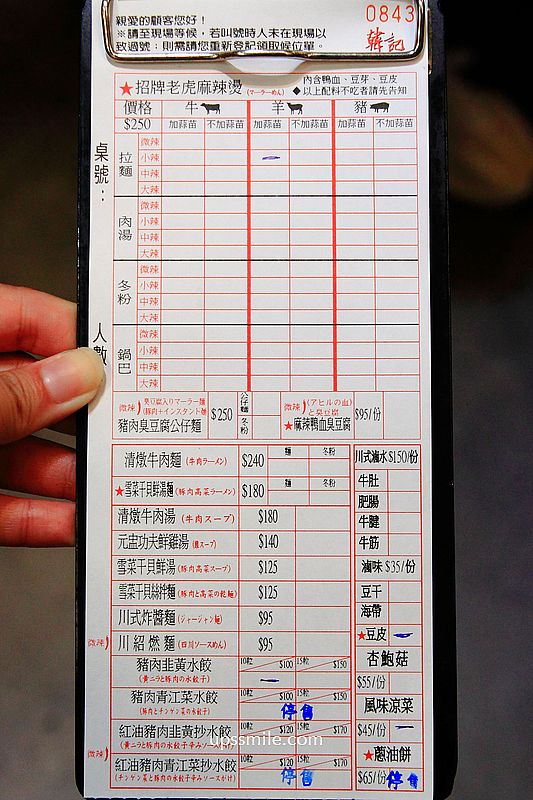 親愛的顧客您好！
※請至現場等候，若叫號時人未在現場以
致過號，則需請您重新登記領取候位單。
0843
韓記
★招牌老虎麻辣燙 (マーラーめん)
內含鴨血、豆芽、豆皮
◆以上配料不吃者請先告知
價格 牛 羊 豬
$250 加蒜苗 不加蒜苗 加蒜苗 不加蒜苗 加蒜苗 不加蒜苗
桌號：
人數
拉麵 微辣 小辣 中辣 大辣
肉湯 微辣 小辣 中辣 大辣
冬粉 微辣 小辣 中辣 大辣
鍋巴 微辣 小辣 中辣 大辣
微辣) 臭豆腐入りマーラー麵
(豚肉+インスタント麵)
豬肉臭豆腐公仔麵 $250 公仔麵 冬粉
微辣) (アヒルの血)
と臭豆腐
★麻辣鴨血臭豆腐 $95/份
清燉牛肉麵 (牛肉ラーメン) $240 麵 冬粉
★雪菜干貝鮮湯麵 (豚肉高菜ラーメン) $180 麵 冬粉
清燉牛肉湯 (牛肉スープ) $180
元盅功夫鮮雞湯 (雞スープ) $140
雪菜干貝鮮湯 (豚肉高菜スープ) $125
雪菜干貝絲拌麵 (豚肉と高菜の乾麵) $125
川式炸醬麵 (ジャージャン麵) $95
微辣) 川紹燃麵 (四川ソースめん) $95
豬肉韭黃水餃
(黃ニラと豚肉の水餃子)
10粒 $100 15粒 $150
豬肉青江菜水餃
(豚肉とチンゲン菜の水餃子)
10粒 $100 15粒 $150
停售
微辣)
紅油豬肉韭黃抄水餃
(黃ニラと豚肉の水餃子辛みソースがけ)
10粒 $120 15粒 $170
紅油豬肉青江菜抄水餃
(チンゲン菜と豚肉の水餃子辛みソースがけ)
10粒 $120 15粒 $170
停售
川式滷水$150/份
牛肚
肥腸
牛腱
牛筋
滷味$35/份
豆干
海帶
★豆皮
杏鮑菇
$55/份
風味涼菜
$45/份
★蔥油餅
$65/份 停售
upssmile.com